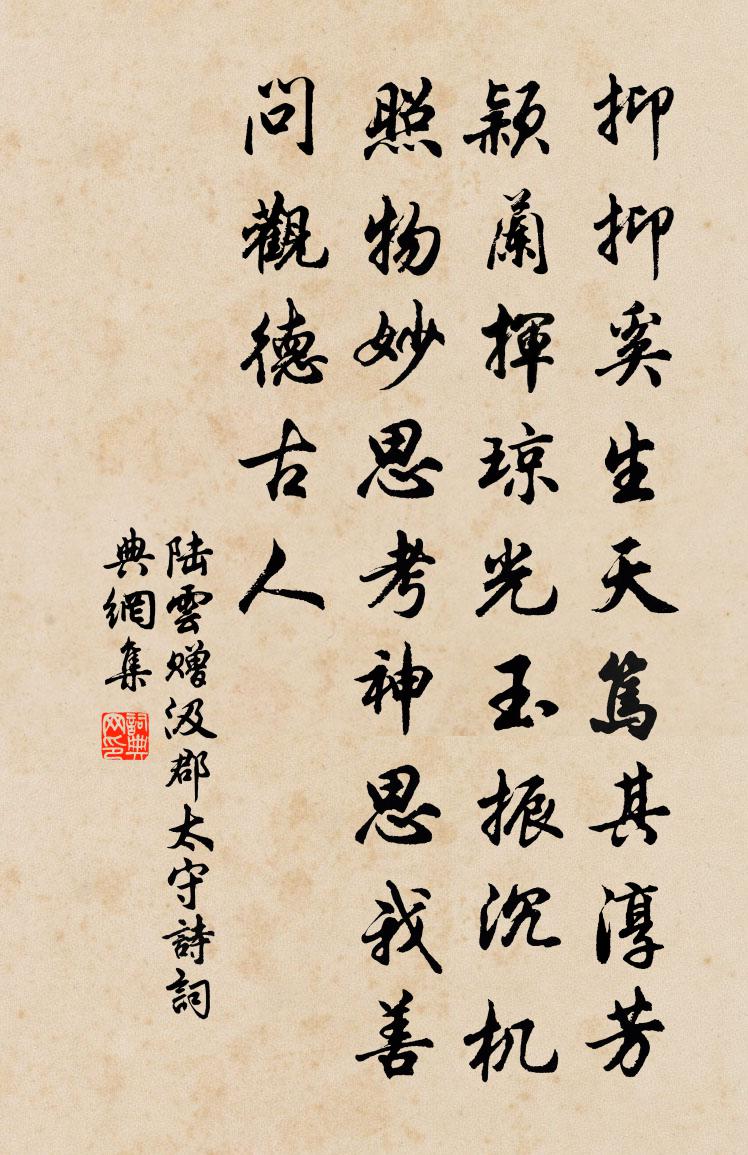 抑抑奚生天篤其淳芳
穎蘭揮琼光玉振沉机
照物妙思考神思我善
問觀德古人
陆雲赠汲郡太守詩詞
典網集
詞典网印